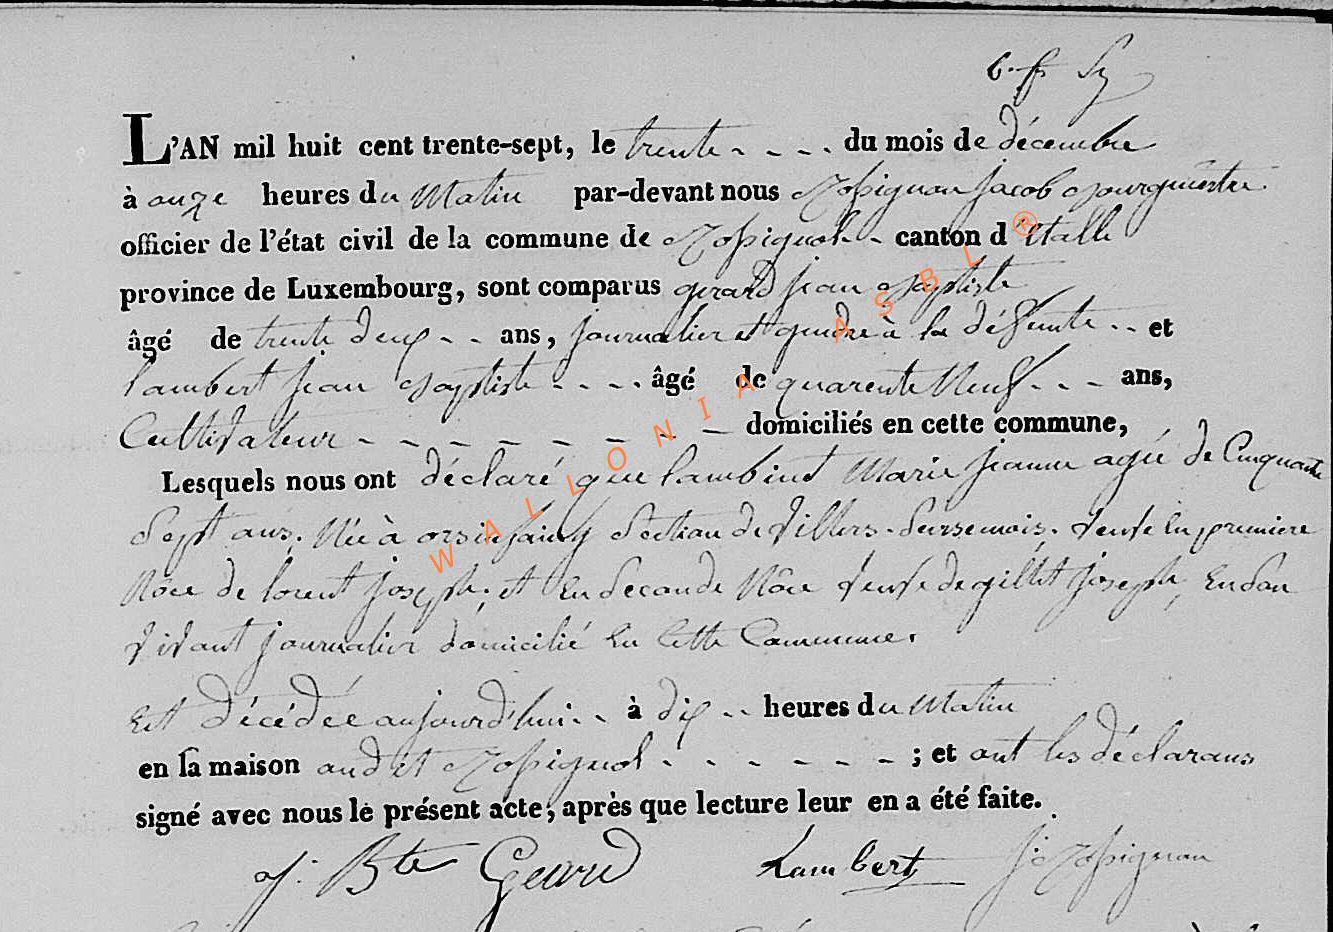 L'AN mil huit cent trente-sept, le trente - - - - du mois de décembre
à onze heures du Matin par-devant nous Rossignon Jacob Bourguestre
officier de l'état civil de la commune de Rossignol - - canton d'Etalle
province de Luxembourg, sont comparus gerard jean Baptiste
âgé de trente deux - - ans, journalier et gendre à la défunte - - et
lambert jean Baptiste - - - - âgé de quarente Neuf - - - ans,
Cultivateur - - - - - - - - domiciliés en cette commune,
Lesquels nous ont déclaré que lambinet Marie jeanne agée de Cinquante
Sept ans. Née à orsinfaing Section de Villers-Sursemois. Veuve en premiere
Nôce de lorent joseph, et En Seconde Nôce Veuve de gillet joseph, En Son
Vivant journalier domicilié En Cette Commune.
Est décédée aujourd'hui - - à dix - - heures du Matin
en sa maison audit Rossignol - - - - - - - ; et ont les déclarans
signé avec nous le présent acte, après que lecture leur en a été faite.
J. Bte Gerard Lambert J: Rossignon
WALLONIA ASBL ®